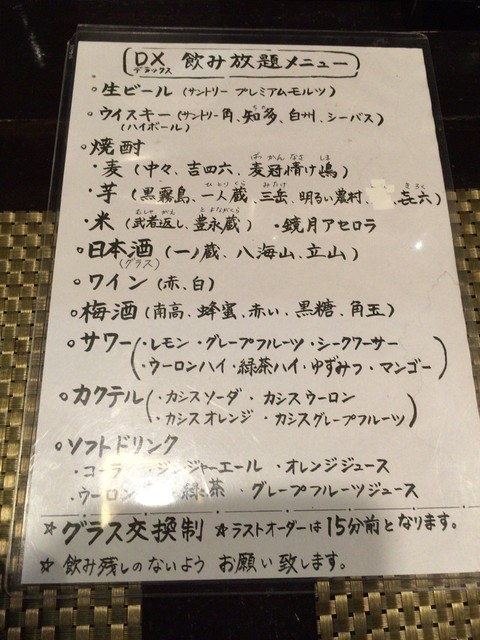 DX 飲み放題メニュー
デラックス
○生ビール (サントリー プレミアムモルツ)
○ウイスキー (サントリー角、知多、白州、シーバス)
(ハイボール)
○焼酎
・麦 (中々、吉四六、麦冠情け嶋)
・芋 (黒霧島、一人蔵、三岳、明るい農村、㐂六)
・米 (武者返し、豊永蔵) ・鏡月アセロラ
○日本酒 (一ノ蔵、八海山、立山)
(グラス)
○ワイン (赤、白)
○梅酒 (南高、蜂蜜、赤い、黒糖、角玉)
○サワー (・レモン・グレープフルーツ・シークワーサー
・ウーロンハイ・緑茶ハイ・ゆずみつ・マンゴー)
○カクテル (・カシスソーダ ・カシスウーロン
・カシスオレンジ ・カシスグレープフルーツ)
○ソフトドリンク
・コーラ ・ジンジャーエール ・オレンジジュース
・ウーロン 緑茶 ・グレープフルーツジュース
☆グラス交換制 ☆ラストオーダーは15分前となります。
☆飲み残しのないよう お願い致します。